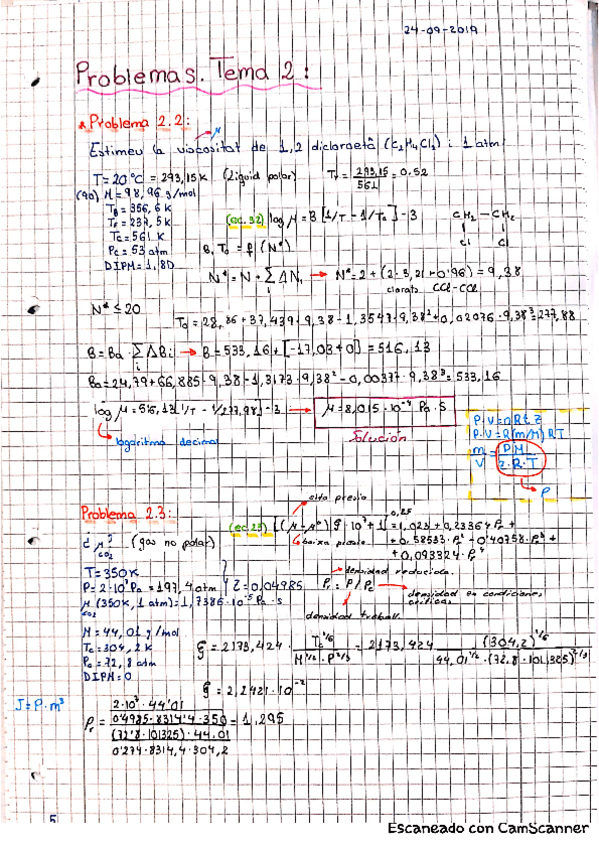 24-09-2019
Problemas. Tema 2:
Problema 2.2:
Estimeu la viscositat de 1,2 dicloroetà (C₂H₄Cl₂) i 1 atm:
T=20°C = 293,15K (Líquid polar) Tr = 293,15/561 = 0.52
M=98,96 g/mol
Tb=356,6 K
Tc=561 K
Pc=53 atm
DIPM=1,8D
(ec.32) log μ = B [1/T - 1/To] - 3
B, To = f(N*)
CH₂ — CH₂
Cl Cl
N* = N + Σ ΔNi → N* = 2 + (2·3,21+0'96) = 9,38
clorats CCl-CCl
N* ≤ 20
To = 28,86 + 37,439·9,38 - 1,3547·9,38² + 0,02076·9,38³ = 277,88
B = Ba · Σ ΔBi → B = 533,16 + [-17,03+0] = 516,13
Ba = 24,79 + 66,885·9,38 - 1,3173·9,38² - 0,00377·9,38³ = 533,16
log μ = 516,13[1/T - 1/277,98] - 3 → μ = 8,015·10⁻⁴ Pa·s
logaritmo decimal
Solución
P·V=nRTz
m/V = P·M/z·R·T
ρ
Problema 2.3:
alta presió
(ec.23) [(μ-μ°) ξ·10³+1]^0,25 = 1,023 + 0,23364 ρr +
+ 0,58533·ρr² - 0'40758·ρr³ +
+ 0,093324·ρr⁴
baixa presió
¿ μ CO₂ ? (gas no polar)
T=350K
P = 2·10⁷Pa = 197,4 atm Z = 0,04985
μ CO₂ (350K, 1 atm) = 1,7386·10⁻⁵ Pa·s
densidad reducida.
ρr = ρ / ρc
densidad en condiciones críticas
densidad treball.
M = 44,01 g/mol
Tc = 304,2 K
Pc = 72,8 atm
DIPM=0
ξ = 2173,424 · Tc^1/6 / M^1/2 · P^2/3 = 2173,424 (304,2)^1/6 / 44,01^1/2 · (72.8·101325)^2/3
ξ = 2,2421·10⁻²
J = P·m³
ρr = 2·10⁷·44'01 / 0'4985·8314'4·350 / (72'8·101325)·44.01 / 0'274·8314,4·304,2 = 1,295
5
Escaneado con CamScanner